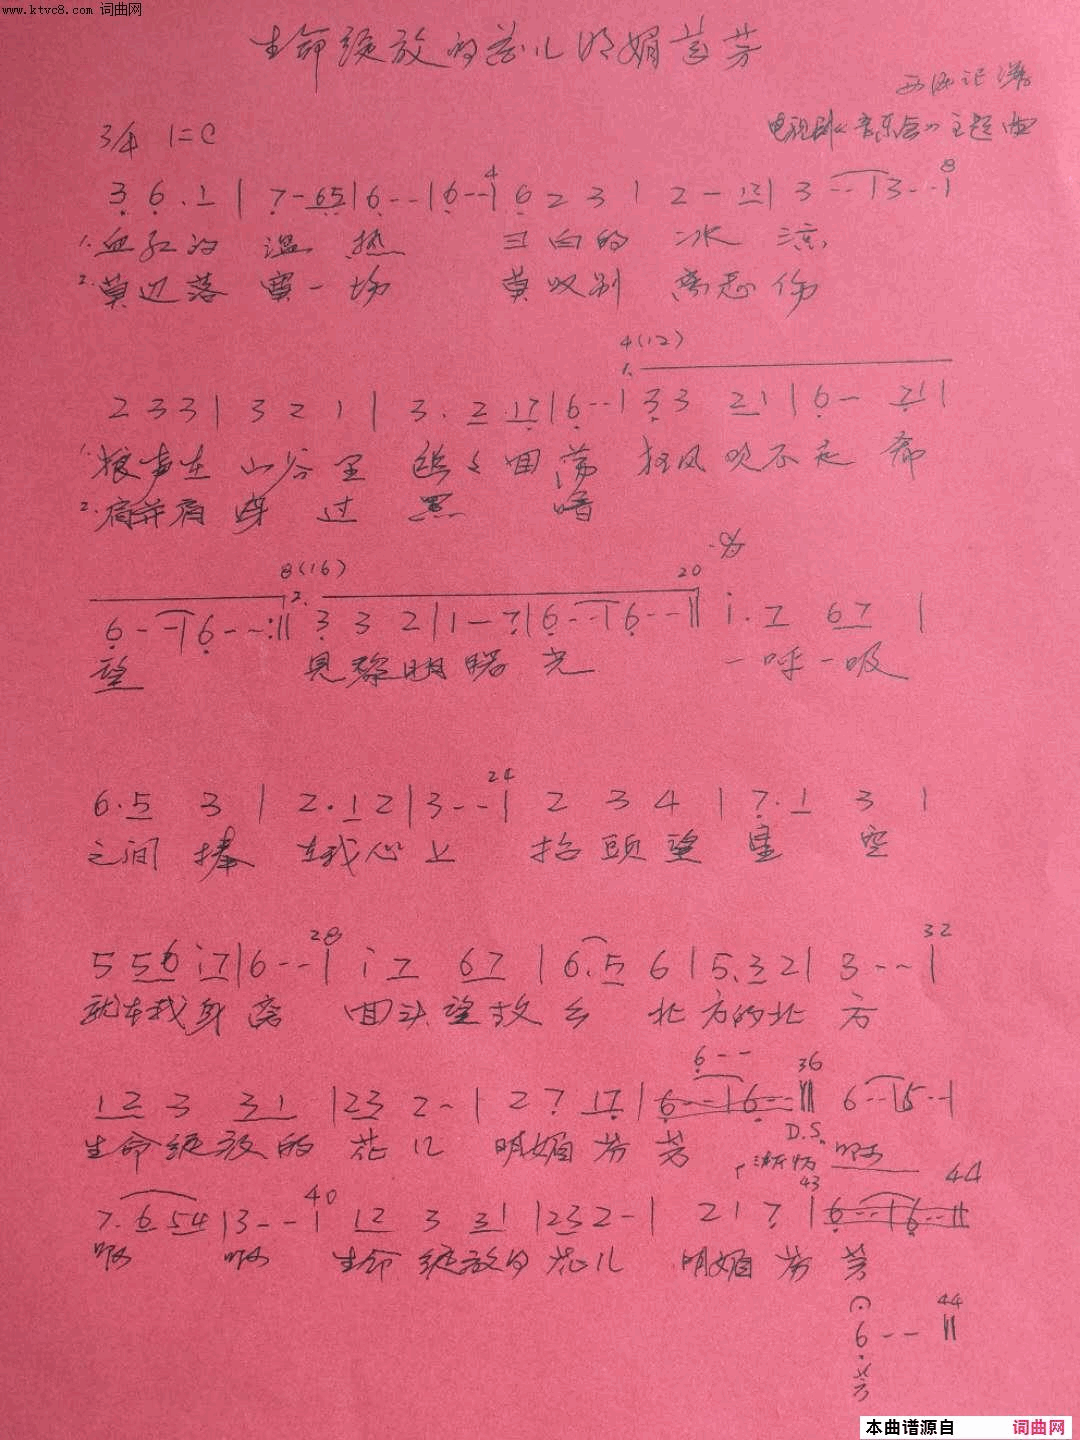 www.ktvc8.com 词曲网
生命绽放的花儿明媚芬芳
记谱
电视剧《音乐会》主题曲
3/4 1=C
4 8
3 6. 1 | 7 - 65 | 6 - - | 6 - - | 6 2 3 | 2 - 12 | 3 - - | 3 - - |
1. 血红的 温 热 白的 冰 凉
2. 莫 落 一场 莫叹别 离 伤
4(12)
1.
2 3 3 | 3 2 1 | 3. 2 17 | 6 - - | 3 3 21 | 6 - 71 |
1. 狼声在 山谷里 回荡 狂风吹不走 希
2. 肩并肩 穿 过 黑 暗
8(16) 20
2.
6 - - | 6 - - :|| 3 3 2 | 1 - 7 | 6 - - | 6 - - || i. 7 67 |
望 见黎明曙光 一呼一吸
24
6. 5 3 | 2. 1 2 | 3 - - | 2 3 4 | 7. 1 3 |
之间 捧 在我心上 抬头望 星 空
28 32
5 56 i7 | 6 - - | i 7 67 | 6. 5 6 | 5. 3 2 | 3 - - |
就在我身旁 回头望故乡 北方的北方
6 - -
36
12 3 31 | 23 2 - | 2 7 17 | 6 - - | 6 - - || 6 - - | 5 - - |
生命绽放的 花儿 明媚芬芳 D.S. 啊
43 44
40
7. 6 54 | 3 - - | 12 3 31 | 23 2 - | 2 1 7 | 6 - - | 6 - - ||
啊 啊 生命绽放的花儿 明媚芬芳
44
6 - - ||
芳
本曲谱源自 词曲网